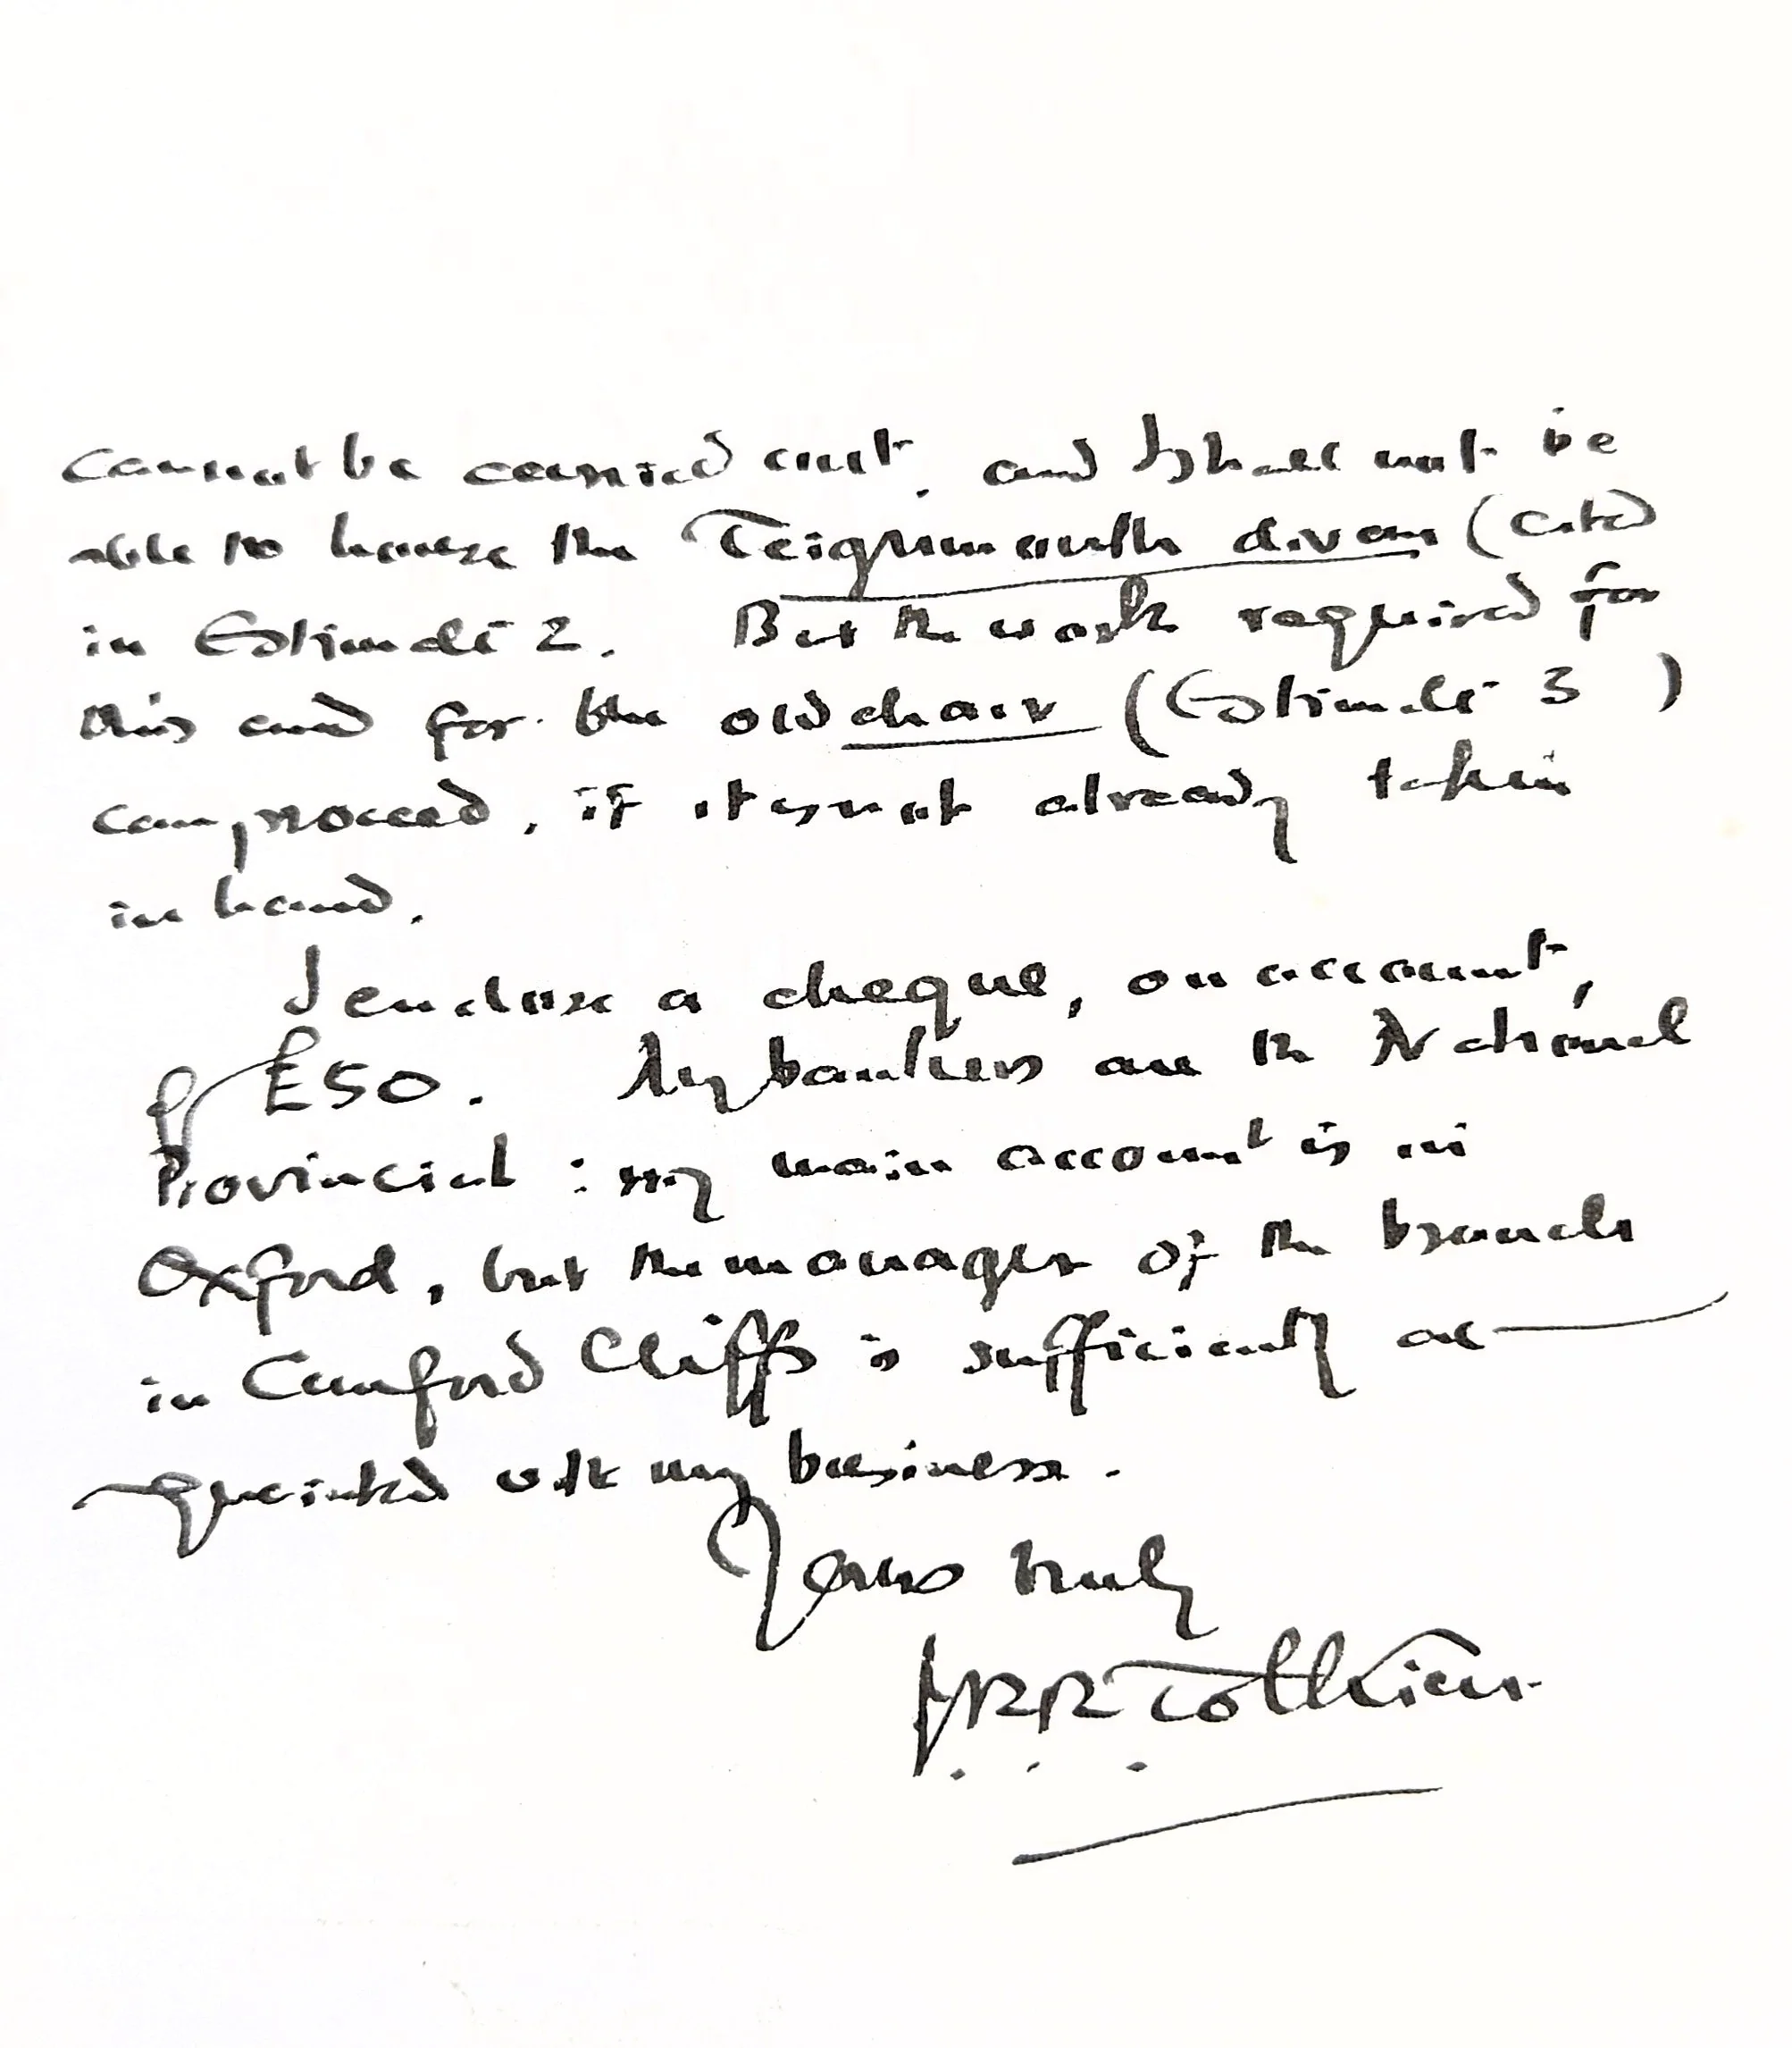 cannot be carried out, and I shall not be
able to house the Teignmouth divan (cited
in Estimate 2. But the work required for
this and for the old chair (Estimate 3)
can proceed, if it is not already taken
in hand.
I enclose a cheque, on account,
of £50. My bankers are the National
Provincial: my main account is in
Oxford, but the manager of the branch
in Canford Cliffs is sufficiently ac-
quainted with my business.
Yours truly
JRRTolkien.